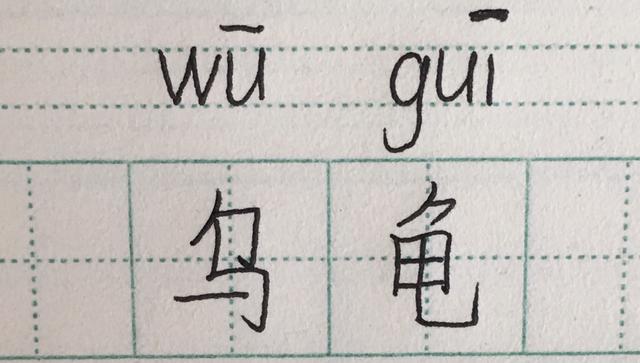 wū guī
乌龟